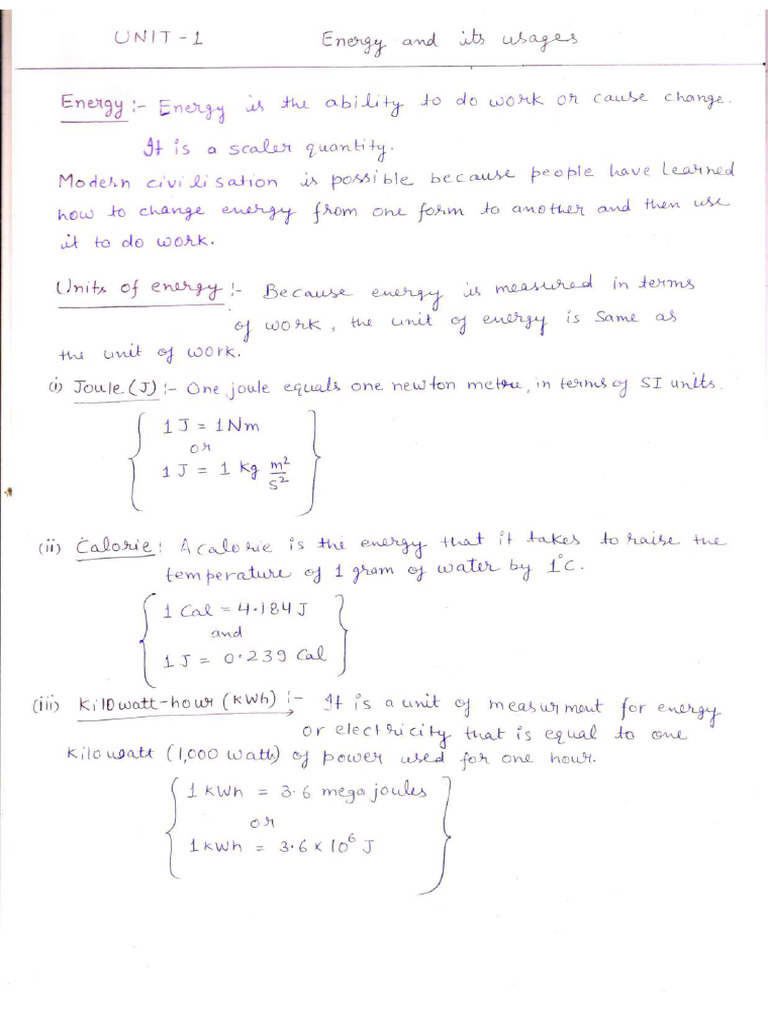 UNIT-1 Energy and its usages
Energy :- Energy is the ability to do work or cause change.
It is a scaler quantity.
Modern civilisation is possible because people have learned
how to change energy from one form to another and then use
it to do work.
Units of energy :- Because energy is measured in terms
of work, the unit of energy is same as
the unit of work.
(i) Joule (J) :- One joule equals one newton metre, in terms of SI units.
1 J = 1 Nm
or
1 J = 1 kg m²/s²
(ii) Calorie : A calorie is the energy that it takes to raise the
temperature of 1 gram of water by 1°C.
1 Cal = 4.184 J
and
1 J = 0.239 Cal
(iii) Kilowatt-hour (kWh) :- It is a unit of measurment for energy
or electricity that is equal to one
kilowatt (1,000 watts) of power used for one hour.
1 kWh = 3.6 mega joules
or
1 kWh = 3.6 × 10⁶ J